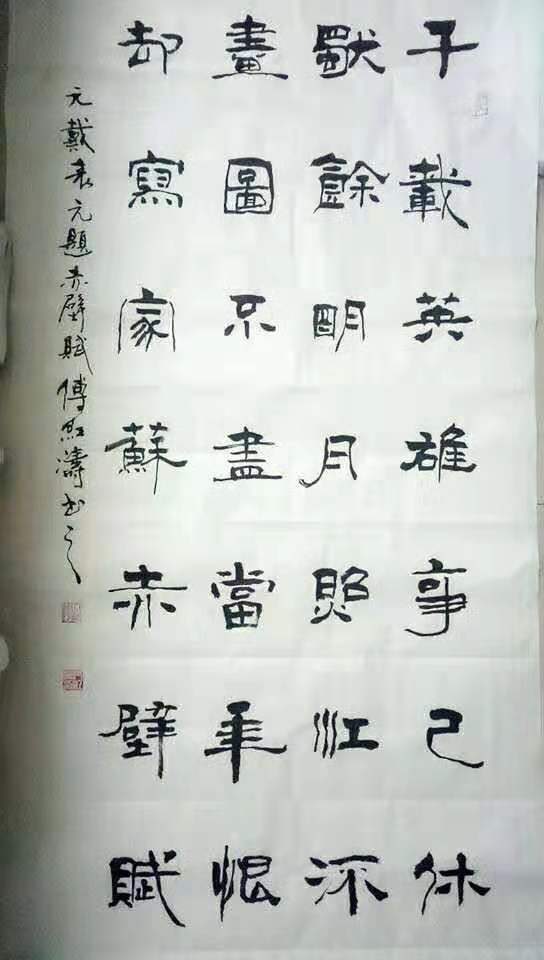 千載英雄事已休
獨餘明月照江流
畫圖不盡當年恨
却寫家蘇赤壁賦
元戴表元題赤壁賦傅紅濤書之